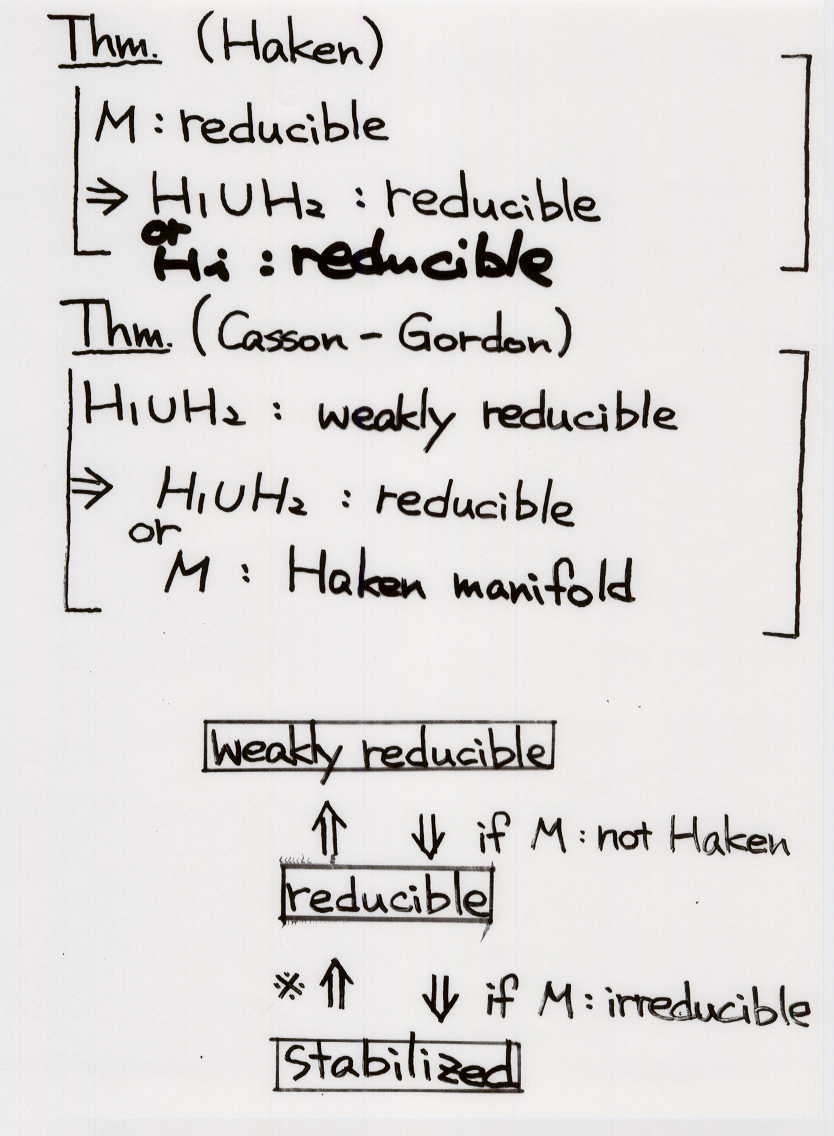 Thm. (Haken)
M : reducible
⇒ H₁∪H₂ : reducible
or
Hi : reducible
Thm. (Casson - Gordon)
H₁∪H₂ : weakly reducible
⇒ H₁∪H₂ : reducible
or
M : Haken manifold
weakly reducible
⇑ ⇓ if M : not Haken
reducible
※ ⇑ ⇓ if M : irreducible
stabilized